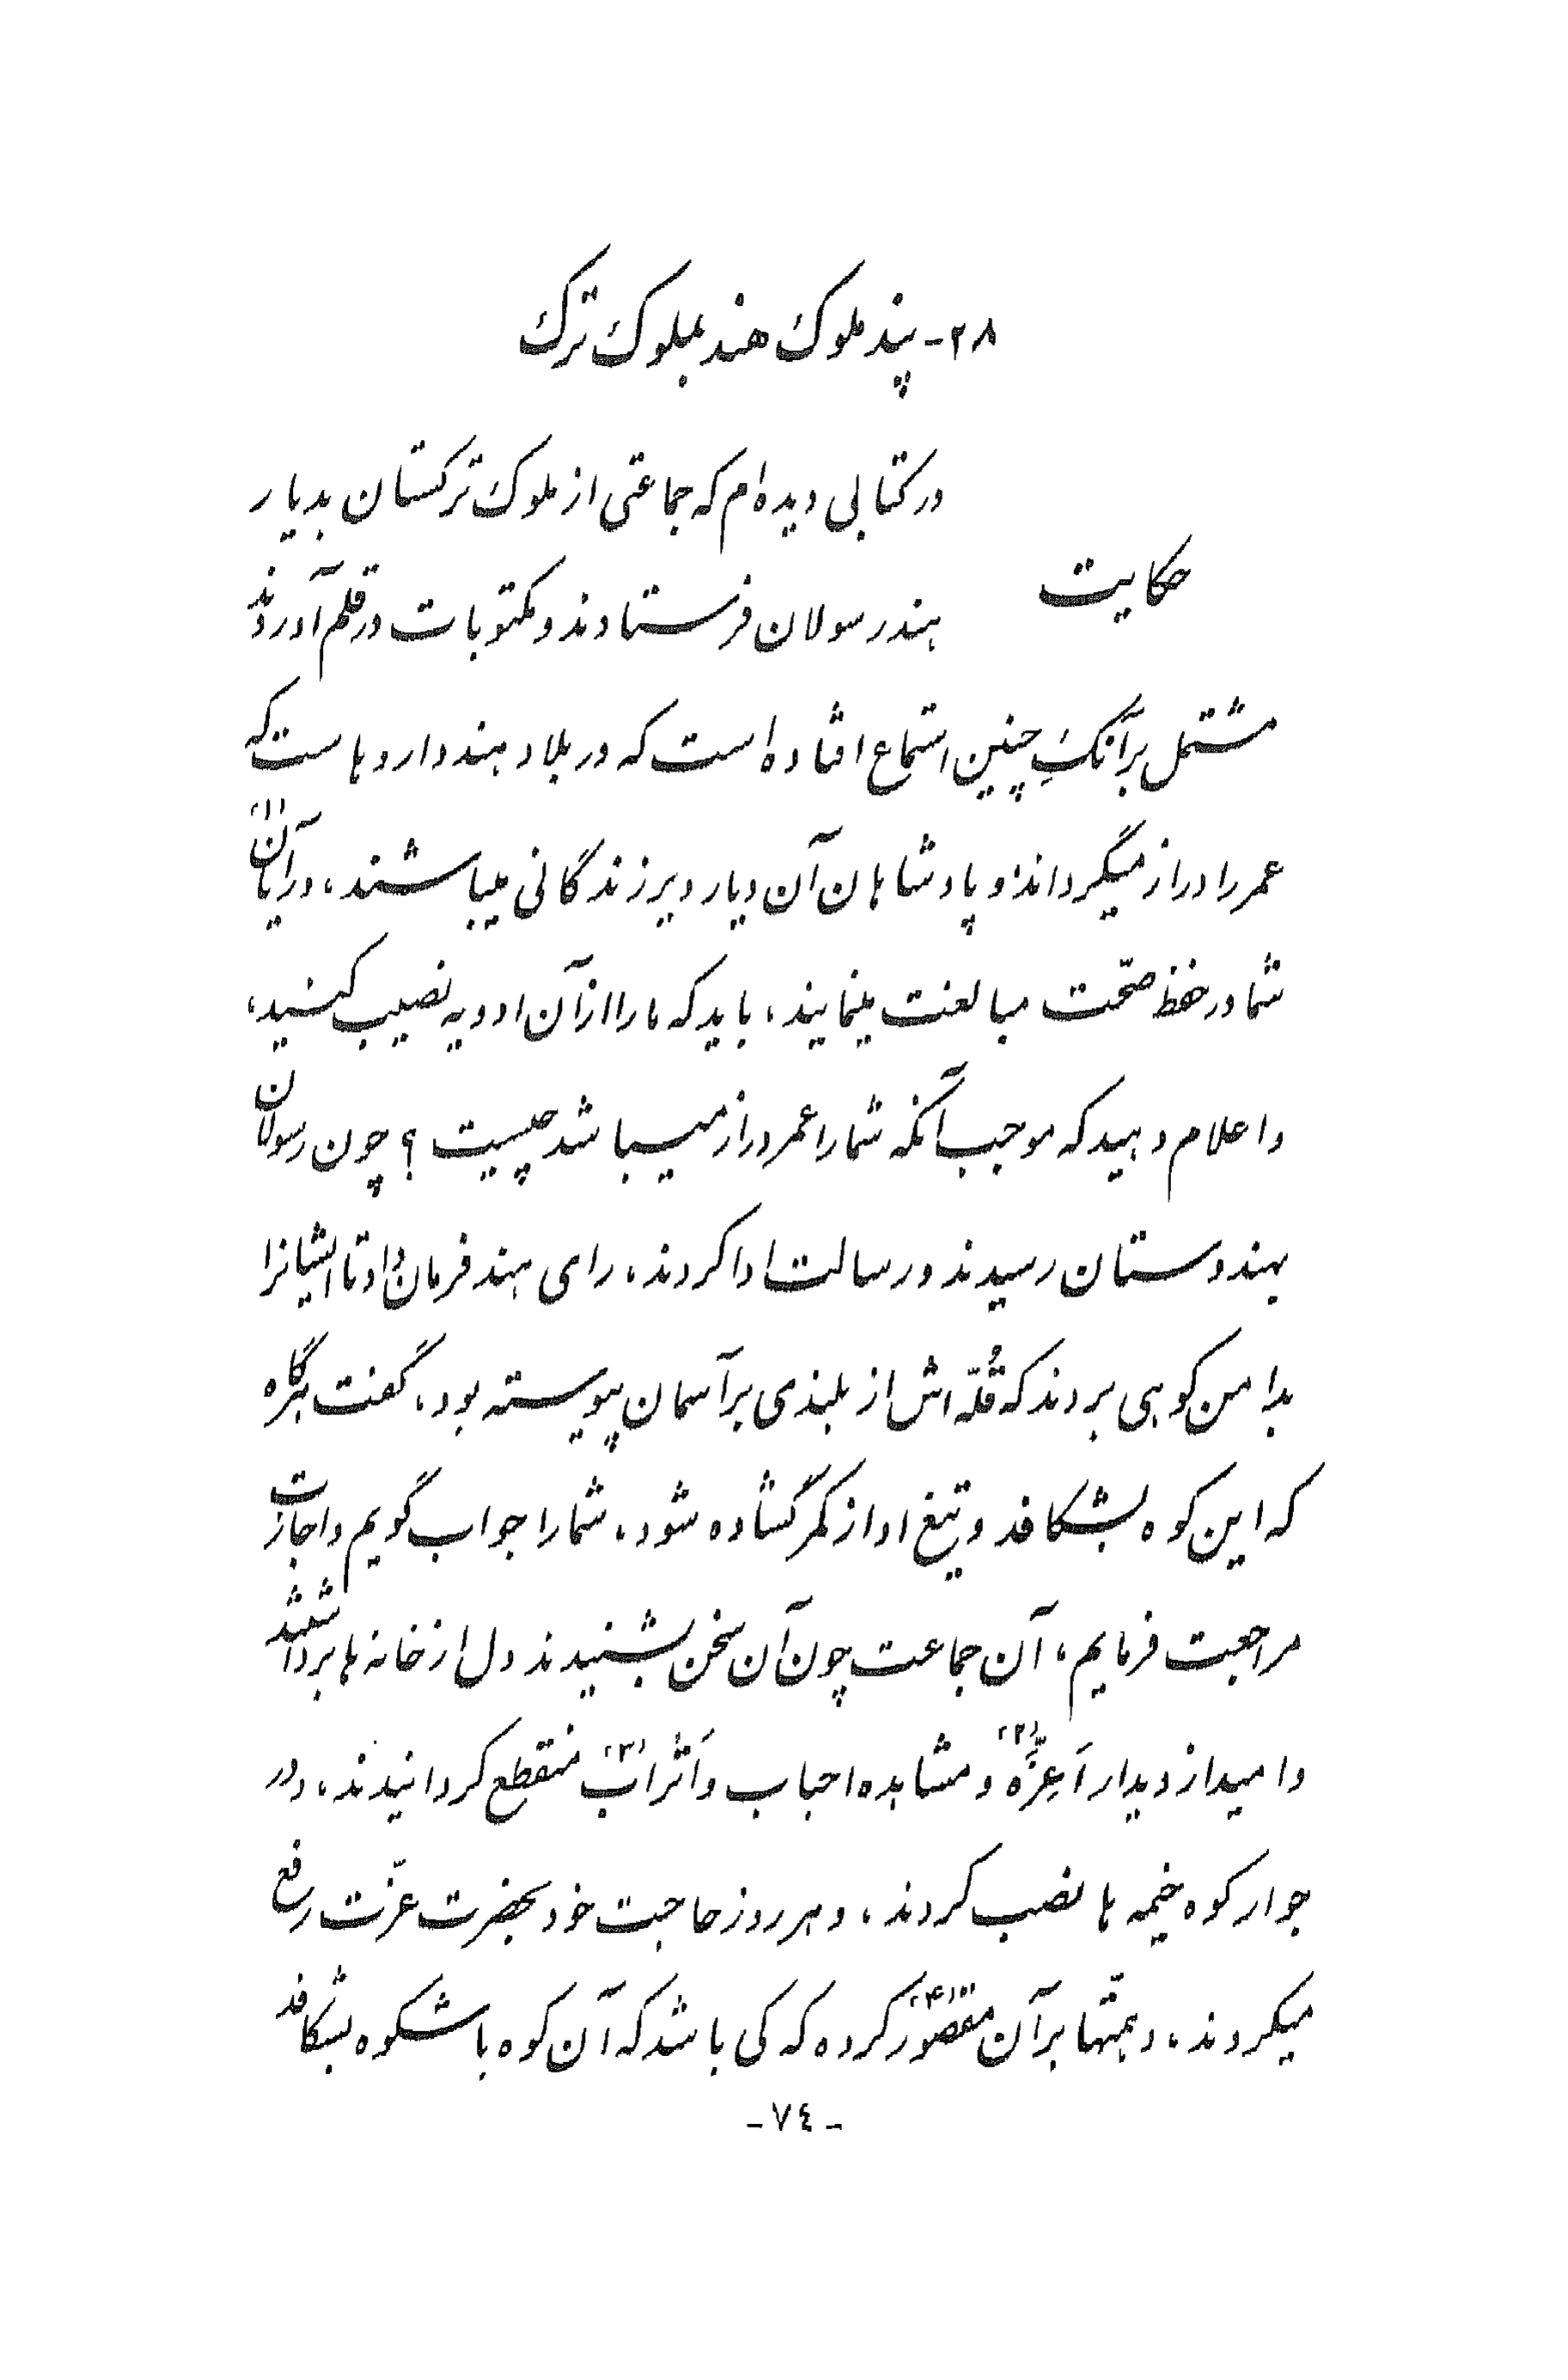 ۲۸- پند ملوک هند بملوک ترک
در کتابی دیده‌ام که جماعتی از ملوک ترکستان بدیار
حکایت
هند رسولان فرستادند و مکتوبات در قلم آوردند
مشتمل بر آنکِ چنین استماع افتاده است که در بلاد هند داروهاست که
عمر را دراز میگرداند و پادشاهان آن دیار دیر زندگانی میباشند، و رایان(۱)
شما در حفظ صحّت مبالغت مینمایند، باید که ما را از آن ادویه نصیب کنید،
و اعلام دهید که موجب آنکه شما را عمر دراز میباشد چیست؟ چون رسولان
بهندوستان رسیدند و رسالت ادا کردند، رای هند فرمان داد تا ایشانرا
بدامن کوهی بردند که قُلّه‌اش از بلندی بر آسمان پیوسته بود، گفت هرگاه
که این کوه بشکافد و تیغ او از کمر گشاده شود، شما را جواب گویم و اجازت
مراجعت فرمایم، آن جماعت چون آن سخن بشنیدند دل از خانه‌ها برداشتند
و امید از دیدار اَعِزَّه(۲) و مشاهده احباب و اَتْراب(۳) منقطع کردانیدند، و در
جوار کوه خیمه‌ها نصب کردند، و هر روز حاجت خود بحضرت عزّت رفع
میکردند، و همّتها بر آن مقصور(۴) کرده که کی باشد که آن کوه با شکوه بشکافد
- ٧٤ -